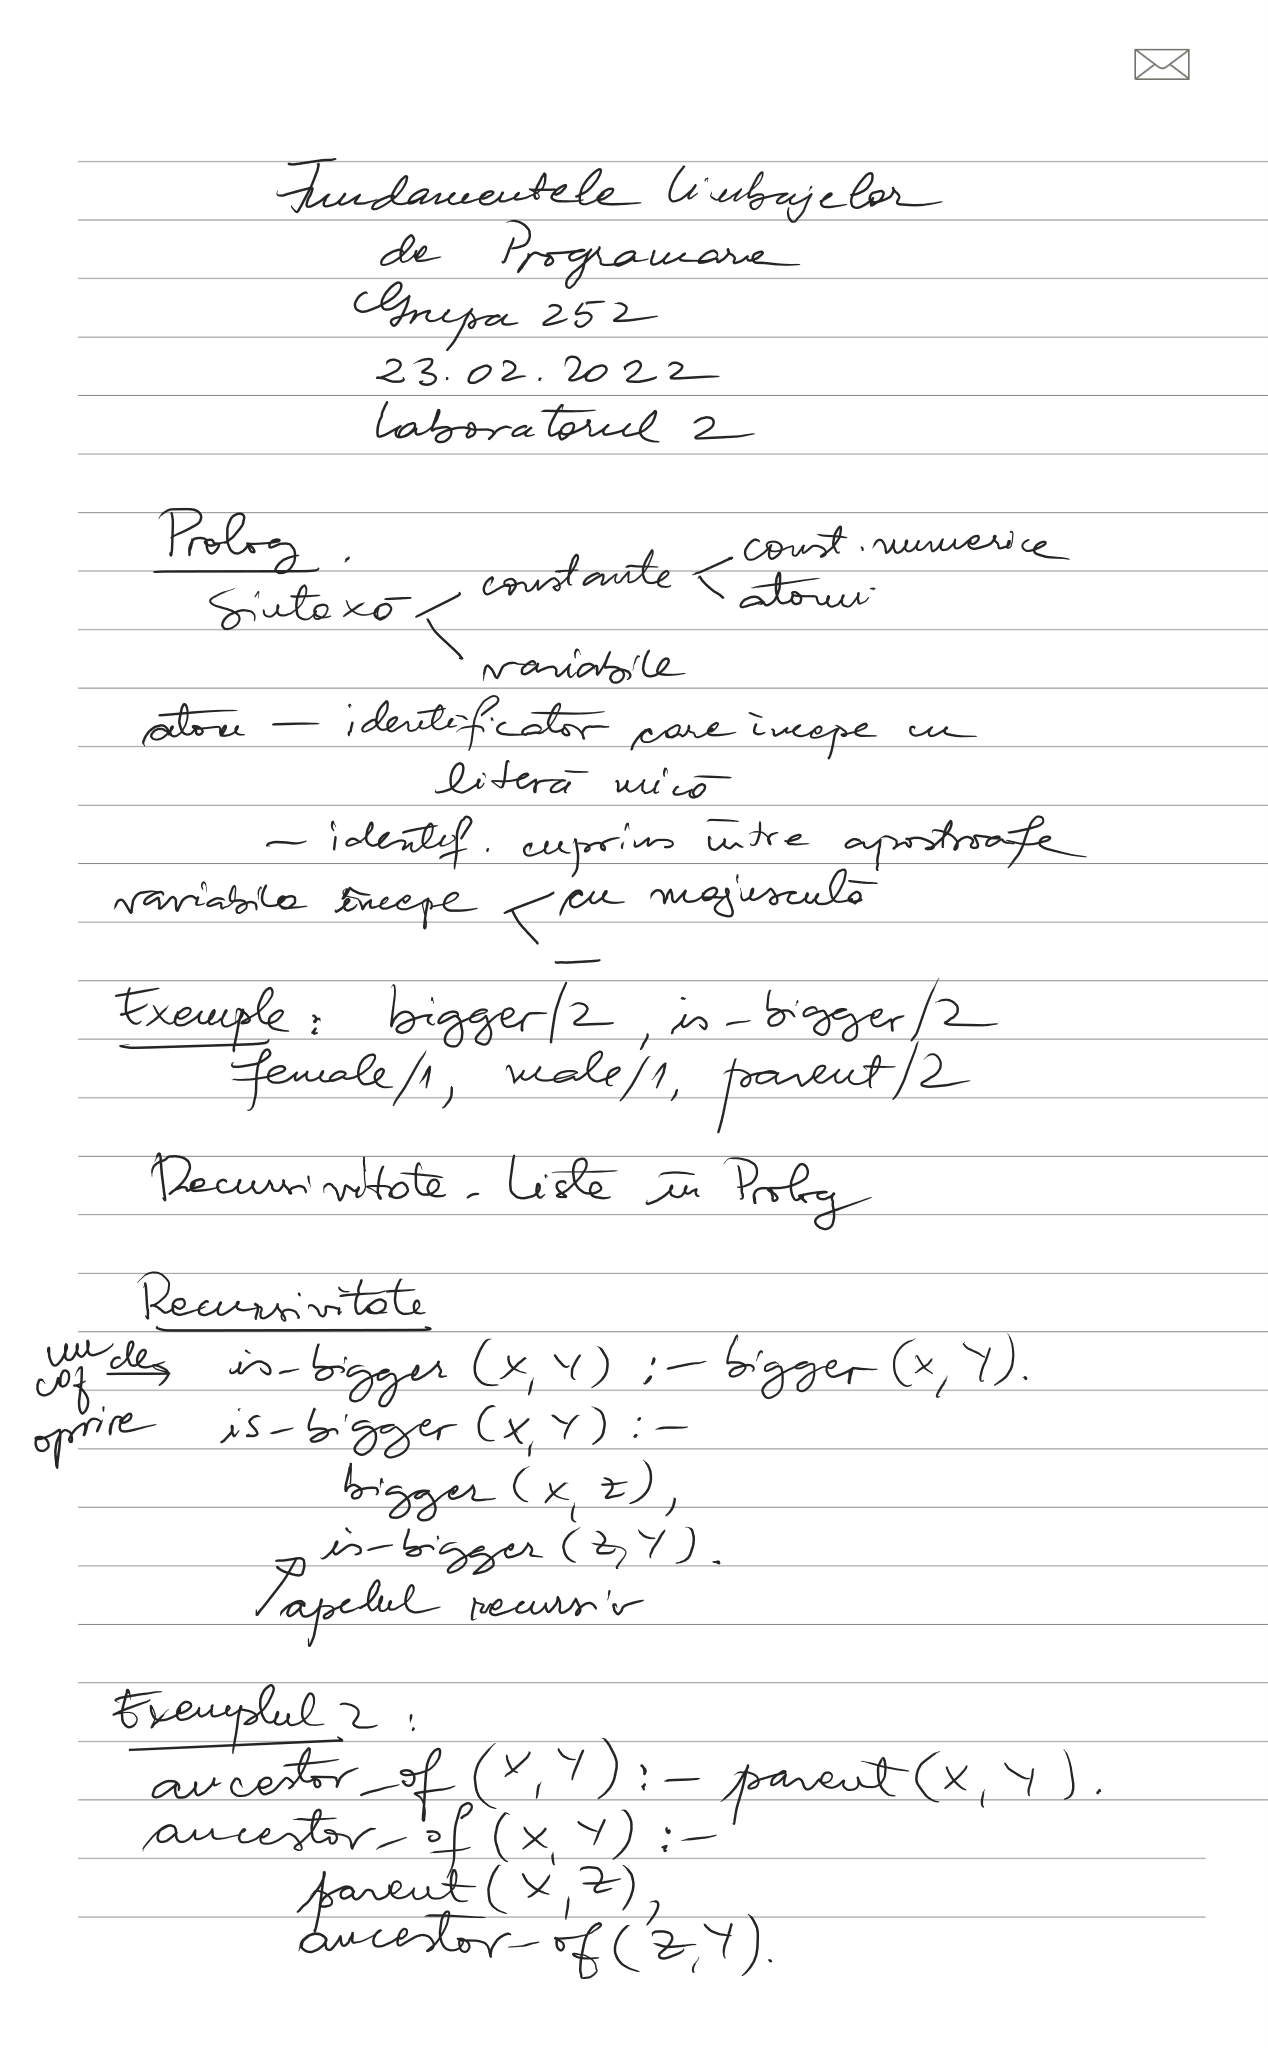 Fundamentele limbajelor
de Programare
Grupa 252
23.02.2022
Laboratorul 2
Prolog
Sintaxă < constante < const. numerice
atomi
variabile
atom — identificator care începe cu
literă mică
— identif. cuprins între apostroafe
variabila începe < cu majusculă
_
Exemple: bigger/2, is_bigger/2
female/1, male/1, parent/2
Recursivitate. Liste în Prolog
Recursivitate
un caz de → is_bigger(X, Y) :- bigger(X, Y).
oprire is_bigger(X, Y) :-
bigger(X, Z),
is_bigger(Z, Y).
apelul recursiv
Exemplul 2:
ancestor_of(X, Y) :- parent(X, Y).
ancestor_of(X, Y) :-
parent(X, Z),
ancestor_of(Z, Y).